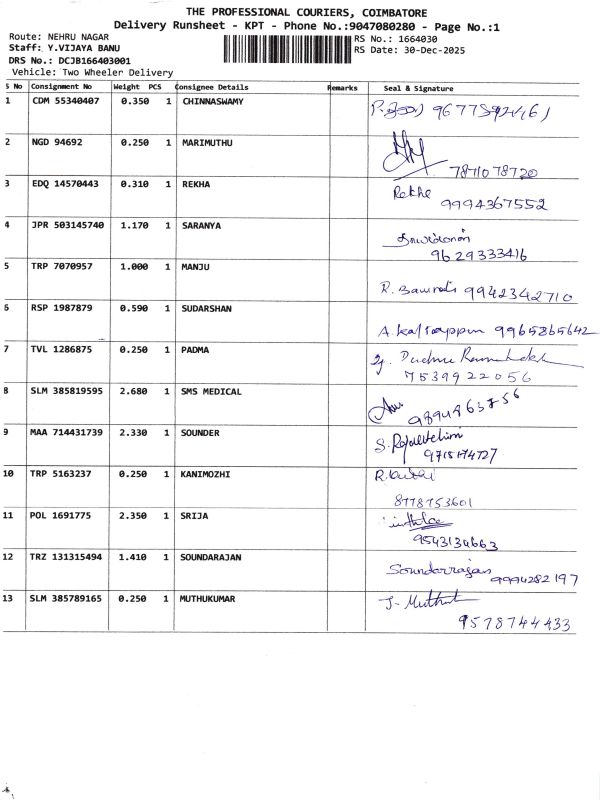 THE PROFESSIONAL COURIERS, COIMBATORE
Delivery Runsheet - KPT - Phone No.:9047080280 - Page No.:1
Route: NEHRU NAGAR RS No.: 1664030
Staff: Y.VIJAYA BANU RS Date: 30-Dec-2025
DRS No.: DCJB166403001
Vehicle: Two Wheeler Delivery
S No Consignment No Weight PCS Consignee Details Remarks Seal & Signature
1 CDM 55340407 0.350 1 CHINNASWAMY
2 NGD 94692 0.250 1 MARIMUTHU
7871078720
3 EDQ 14570443 0.310 1 REKHA Rekha
9994367552
4 JPR 503145740 1.170 1 SARANYA
9629333416
5 TRP 7070957 1.000 1 MANJU
R. 9942342710
6 RSP 1987879 0.590 1 SUDARSHAN
A. 9965865642
7 TVL 1286875 0.250 1 PADMA
7539922056
8 SLM 385819595 2.680 1 SMS MEDICAL
9894863756
9 MAA 714431739 2.330 1 SOUNDER S.
9715174727
10 TRP 5163237 0.250 1 KANIMOZHI R.
8778753601
11 POL 1691775 2.350 1 SRIJA
9543134663
12 TRZ 131315494 1.410 1 SOUNDARAJAN Soundarrajan
9994282197
13 SLM 385789165 0.250 1 MUTHUKUMAR J. Muthu
9578744433